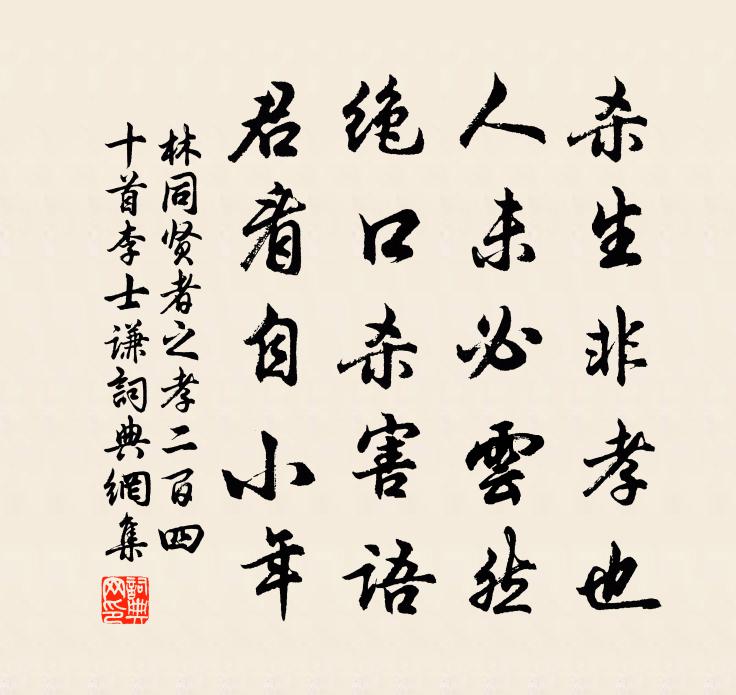 杀生非孝也
人未必雲然
绝口杀害语
君看自小年
林同贤者之孝二百四
十首李士谦詞典網集
詞典網印